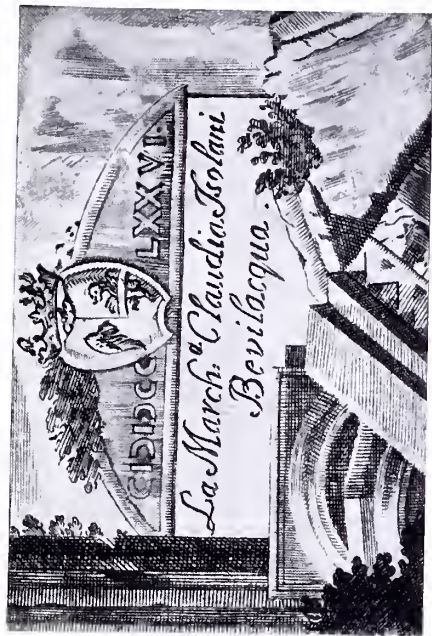 CIƆIƆCC LXXVI.
La March:ª Claudia Isolani
Bevilacqua